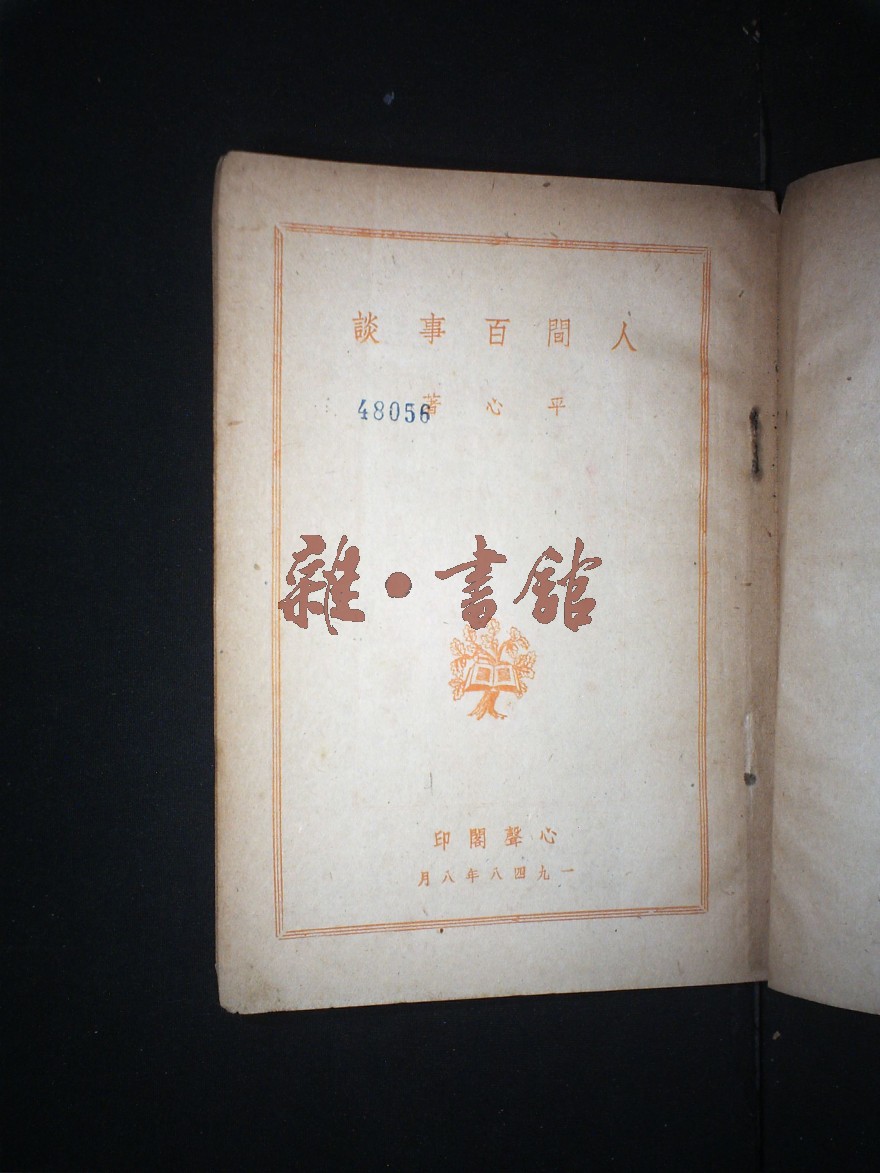 人間百事談
平心著
48056
雜·書館
心聲閣印
一九四八年八月